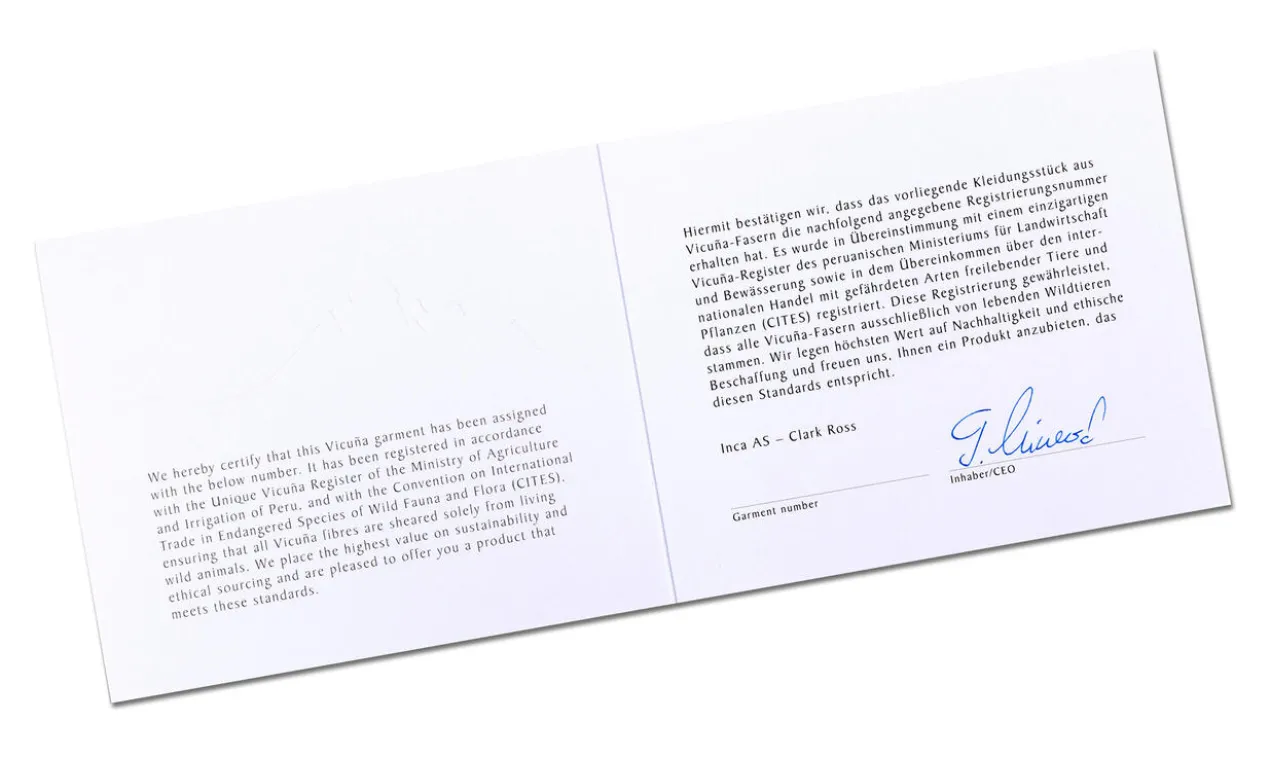 We hereby certify that this Vicuña garment has been assigned
with the below number. It has been registered in accordance
with the Unique Vicuña Register of the Ministry of Agriculture
and Irrigation of Peru, and with the Convention on International
Trade in Endangered Species of Wild Fauna and Flora (CITES),
ensuring that all Vicuña fibres are sheared solely from living
wild animals. We place the highest value on sustainability and
ethical sourcing and are pleased to offer you a product that
meets these standards.
Hiermit bestätigen wir, dass das vorliegende Kleidungsstück aus
Vicuña-Fasern die nachfolgend angegebene Registrierungsnummer
erhalten hat. Es wurde in Übereinstimmung mit einem einzigartigen
Vicuña-Register des peruanischen Ministeriums für Landwirtschaft
und Bewässerung sowie in dem Übereinkommen über den inter-
nationalen Handel mit gefährdeten Arten freilebender Tiere und
Pflanzen (CITES) registriert. Diese Registrierung gewährleistet,
dass alle Vicuña-Fasern ausschließlich von lebenden Wildtieren
stammen. Wir legen höchsten Wert auf Nachhaltigkeit und ethische
Beschaffung und freuen uns, Ihnen ein Produkt anzubieten, das
diesen Standards entspricht.
Inca AS – Clark Ross
Garment number
Inhaber/CEO